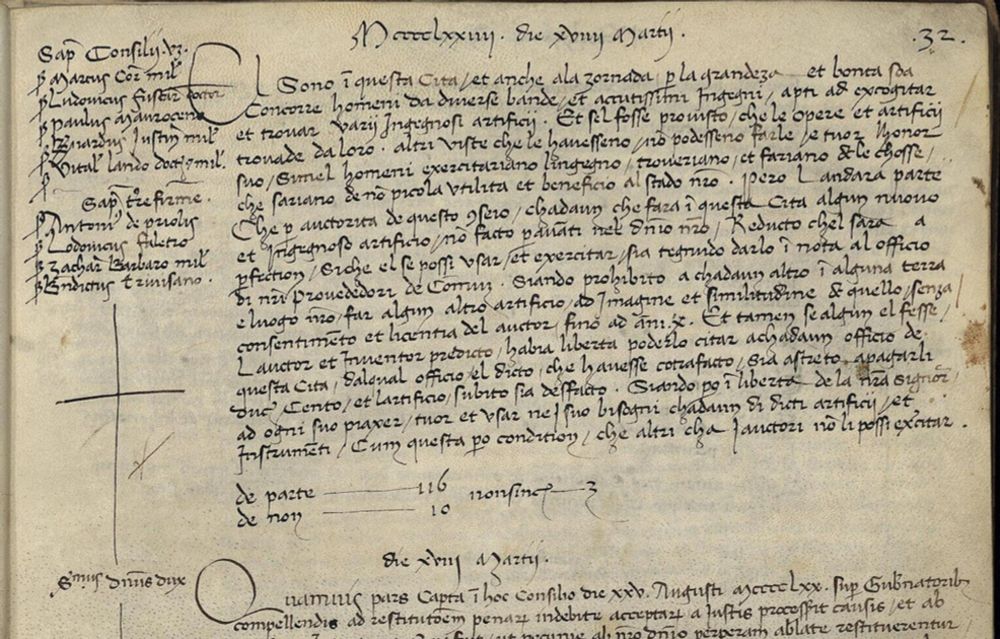 Mcccclxxiiii. die xviiii Martii.
.32.
Sap̃ Consilij.
ꝑ Marcus Cor̃ mil̃
ꝑ Ludovicus fuscar̃ doctor
ꝑ Paulus Mauroceno
ꝑ Bn̄ardus Justin̄ mil̃
ꝑ Vital̃ lando doct̃ mil̃.
ꝑ
Sap̃ t̃re firme.
ꝑ Antoni᷒ de priolis
ꝑ Lodovicus faletro
ꝑ Zachar̃ Barbaro mil̃
ꝑ Bndictus trivisano.
El Sono ī questa Cita / et anche ala zornada ꝑ la grandeza et bonta soa
Concorre homeni da diverse bande / et accutissimi Ingegni, apti ad excogitar
et trovar varii Ingegnosi artificii. Et sel fosse provisto / che le opere et artificii
trovade da loro. altri viste che le havesseno / nō podesseno farle / e tuor lhonor
suo / Simel homeni exercitariano lingegno, troveriano, et fariano de le chosse /
che sariano de nō picola utilita et beneficio al stado nr̃o. Pero Landara parte
Che ꝑ auctorita de questo ꝯseio / chadaun che fara ī questa Cita algun nuovo
et Ingegnoso artificio / nō facto ꝑavanti nel dn̄io nr̃o / Reducto chel sara a
ꝑfection / Siche el se possi usar / et exercitar / sia tegnudo darlo ī nota al officio
di nr̃i Provededori de Comun. Siando prohibito a chadaun altro ī alguna terra
e luogo nr̃o / far algun altro artificio / ad Imagine et similitudine de quello / senza
consentimento et licentia del auctor / fino ad ani .x. Et tamen se algun el fesse /
Lauctor et Inventor predicto / habia liberta poderlo citar achadaun officio de
questa Cita / dalqual officio el dicto / che havesse cōtrafacto / sia astreto apagarli
duc̃ Cento / et lartificio / subito sia desfacto. Siando ꝑo ī liberta de la nr̃a Signor̃
ad ogni suo piaxer / tuor et usar ne I suo bisogni chadaun di dicti artificii / et
Instrumēti / Cum questa ꝑo condition / che altri cha I auctori nō li possi exercitar.
de parte 116 nonsinc̃ 3
de non 10
die xviii Martii.
S᷒mus dn̄us dux
Quamvis pars Capta ī hoc Consilio die xxv. Augusti Mcccclxx. suꝑ Gubernatorib᷒
compellendis ad restitutōem penar̃ indebite acceptar̃ a Justis processit causis / et ab